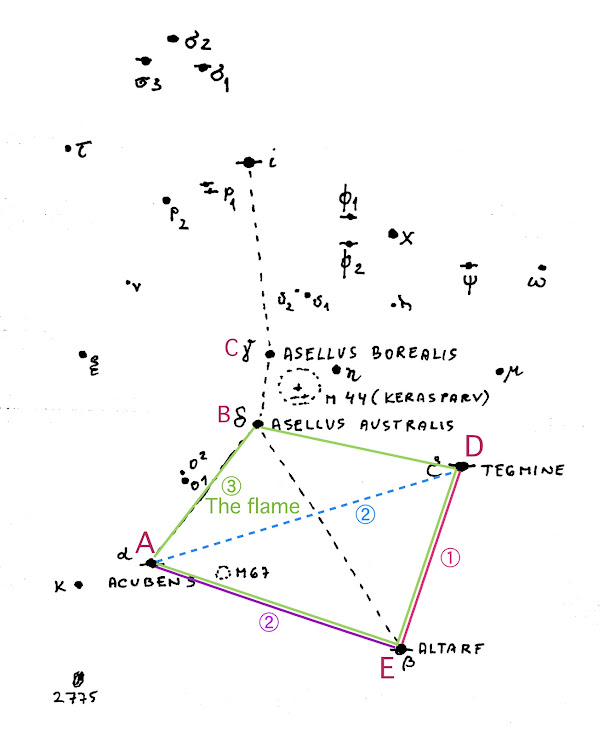 σ2
σ3 σ1
τ
i
ρ1
ρ2
φ1
χ
φ2
ψ ω
ν
υ2 υ1
λ
ξ
C γ ASELLUS BOREALIS
η μ
M 44 (KERASPARV)
B δ ASELLUS AUSTRALIS
D
ζ TEGMINE
O2
O1 ③
The flame
②
A
α ACUBENS M67
①
κ
②
E β ALTARF
2775